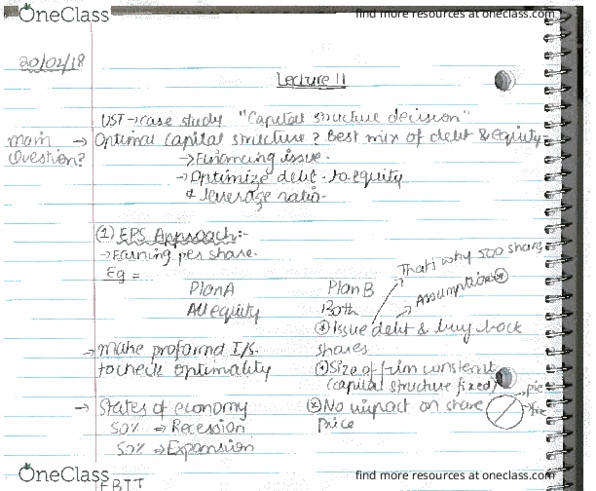 OneClass
find more resources at oneclass.com
20/02/18
Lecture 11
UST → case study "Capital structure decision"
Main Question? → Optimal capital structure? Best mix of debt & equity
→ Financing issue.
→ Optimize debt-to equity
& leverage ratio.
(1) EPS Approach:-
→ Earning per share.
Eg =
That's why 500 shares
Plan A Plan B
Assumptions
All equity Both
Issue debt & buy back
shares
→ Make proforma I/S.
to check optimality
Size of firm constant
(capital structure fixed)
pie
→ States of economy
No impact on share
Price
50% → Recession
50% → Expansion
OneClass
find more resources at oneclass.com
EBIT